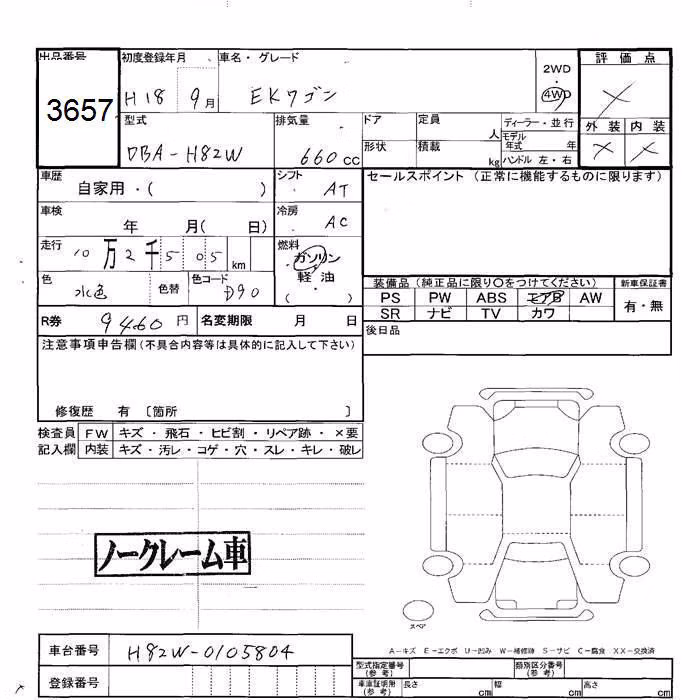 出品番号
3657
初度登録年月
H18 9月
車名・グレード
EKワゴン
2WD
・
4WD
評価点
×
外装 内装
× ×
型式
DBA-H82W
排気量
660cc
ドア
形状
定員
人
積載
kg
ディーラー・並行
モデル
年式 年
ハンドル 左・右
車歴
自家用・( )
シフト
AT
車検
年 月( 日)
冷房
AC
走行
10万2千505km
燃料
ガソリン
軽油
( )
色
水色
色替
色コード
D90
R券
9460円
名変期限 月 日
セールスポイント(正常に機能するものに限ります)
装備品(純正品に限り〇をつけてください)
PS PW ABS エアB AW
SR ナビ TV カワ
新車保証書
有・無
後日品
注意事項申告欄(不具合内容等は具体的に記入して下さい)
修復歴 有 〔箇所 〕
検査員
記入欄
FW キズ・飛石・ヒビ割・リペア跡・×要
内装 キズ・汚レ・コゲ・穴・スレ・キレ・破レ
ノークレーム車
スペア
A-キズ E-エクボ U-凹み W-補修跡 S-サビ C-腐食 XX-交換済
車台番号
H82W-0105804
登録番号
型式指定番号
(参考)
類別区分番号
(参考)
車庫証明無
(参考)
長さ cm 幅 cm 高さ cm